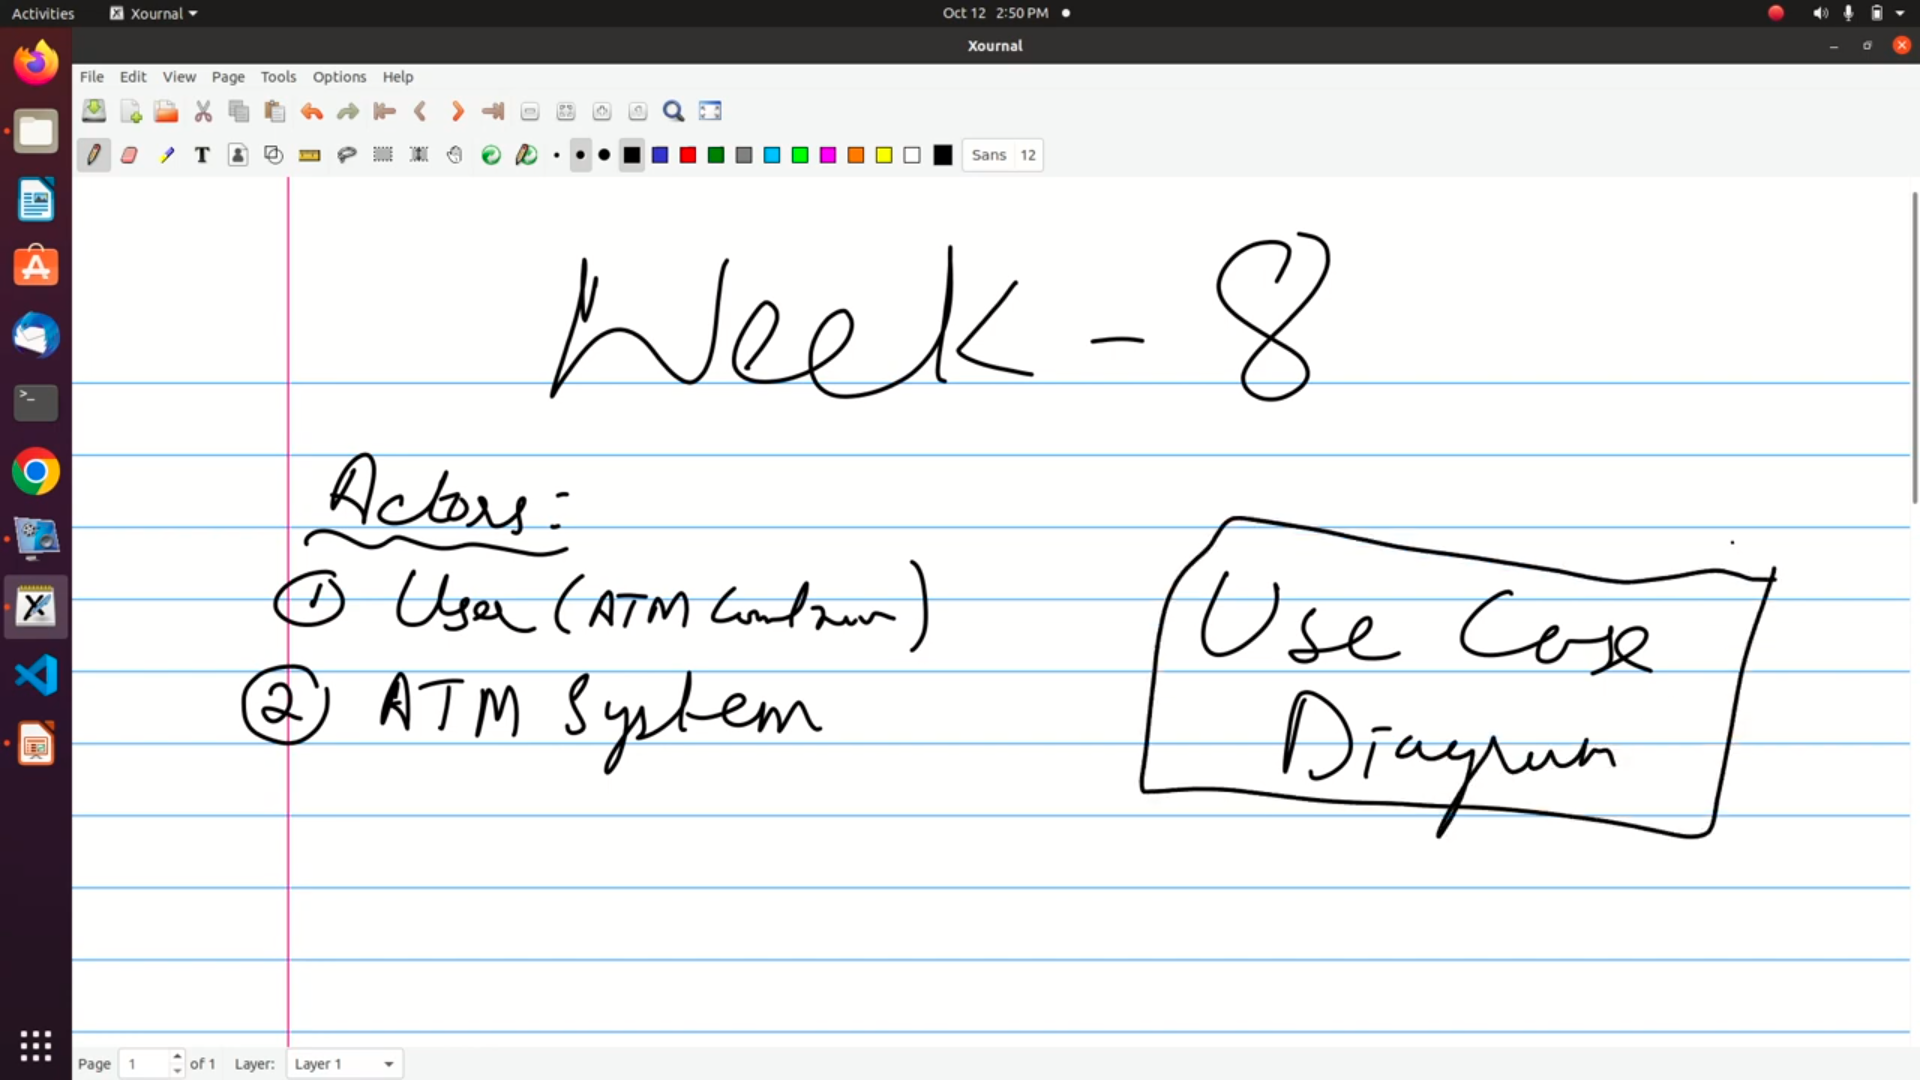 Activities Xournal Oct 12 2:50 PM
Xournal
File Edit View Page Tools Options Help
T Sans 12
Week - 8
Actors:
① User (ATM
② ATM System
Use Case
Diagram
Page 1 of 1 Layer: Layer 1